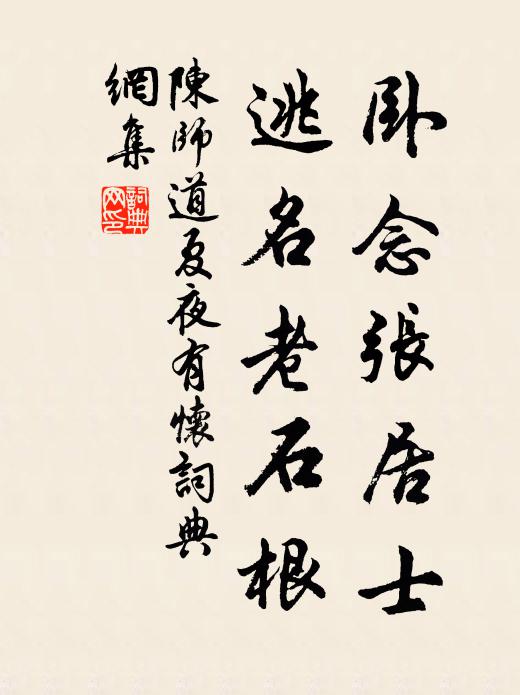 卧念張居士
逃名老石根
陳師道夏夜有懷詞典
網集
詞典
网印